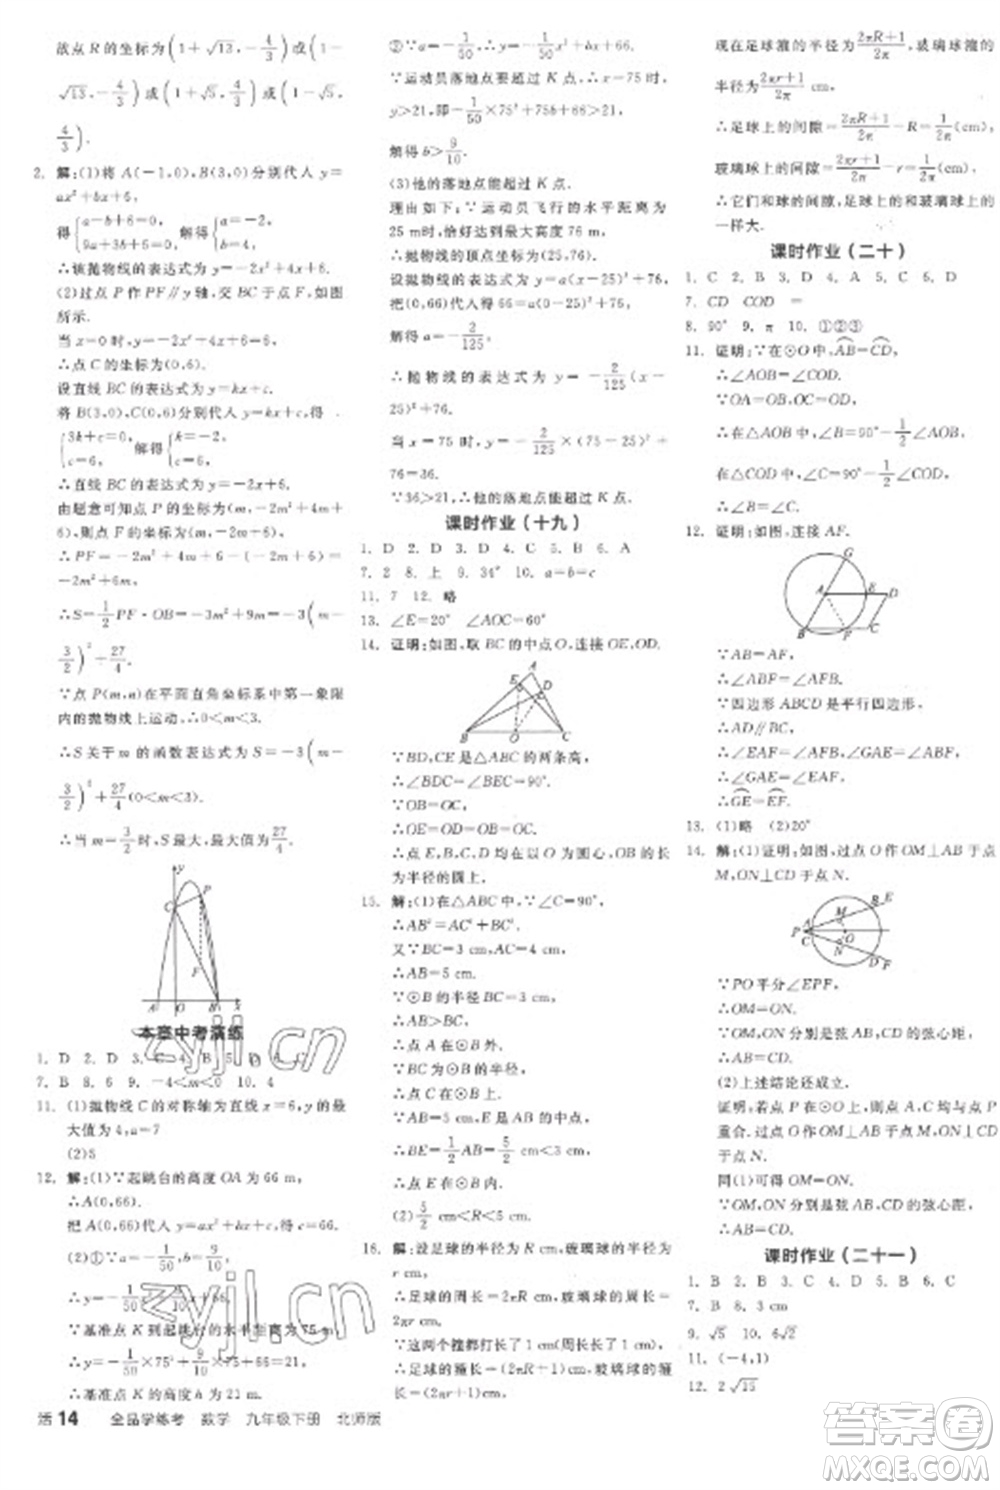 故点 R 的坐标为(1+√13,-4/3)或(1-
√13,-4/3)或(1+√5,4/3)或(1-√5,
4/3).
2. 解:(1)将 A(-1,0),B(3,0)分别代入 y=
ax²+bx+6,
得{a-b+6=0, 9a+3b+6=0, 解得{a=-2, b=4,
∴该抛物线的表达式为 y=-2x²+4x+6.
(2)过点 P 作 PF∥y 轴,交 BC 于点 F,如图
所示.
当 x=0 时,y=-2x²+4x+6=6,
∴点 C 的坐标为(0,6).
设直线 BC 的表达式为 y=kx+c.
将 B(3,0),C(0,6)分别代入 y=kx+c,得
{3k+c=0, c=6, 解得{k=-2, c=6,
∴直线 BC 的表达式为 y=-2x+6.
由题意可知点 P 的坐标为(m,-2m²+4m+
6),则点 F 的坐标为(m,-2m+6),
∴PF=-2m²+4m+6-(-2m+6)=
-2m²+6m,
∴S=1/2 PF·OB=-3m²+9m=-3(m-
3/2)²+27/4.
∵点 P(m,n)在平面直角坐标系中第一象限
内的抛物线上运动,∴0<m<3.
∴S 关于 m 的函数表达式为 S=-3(m-
3/2)²+27/4(0<m<3).
∴当 m=3/2时,S 最大,最大值为27/4.
y
C
P
F
A
O
B
x
本章中考演练
1. D 2. D 3. C 4. B 5. D 6. C
7. B 8. 6 9. -4<m<0 10. 4
11. (1)抛物线 C 的对称轴为直线 x=6,y 的最
大值为 4,a=7
(2)5
12. 解:(1)∵起跳台的高度 OA 为 66 m,
∴A(0,66).
把 A(0,66)代入 y=ax²+bx+c,得 c=66.
(2)①∵a=-1/50,b=9/10,
∴y=-1/50x²+9/10x+66.
∵基准点 K 到起跳台的水平距离为 75 m,
∴y=-1/50×75²+9/10×75+66=21,
∴基准点 K 的高度 h 为 21 m.
②∵a=-1/50,∴y=-1/50x²+bx+66.
∵运动员落地点要超过 K 点,∴x=75 时,
y>21,即-1/50×75²+75b+66>21,
解得 b>9/10.
(3)他的落地点能超过 K 点.
理由如下:∵运动员飞行的水平距离为
25 m时,恰好达到最大高度 76 m,
∴抛物线的顶点为(25,76).
设抛物线的表达式为 y=a(x-25)²+76.
把(0,66)代入得 66=a(0-25)²+76,
解得 a=-2/125,
∴抛物线的表达式为 y=-2/125(x-
25)²+76.
当 x=75 时,y=-2/125×(75-25)²+
76=36.
∵36>21,∴他的落地点能超过 K 点.
课时作业(十九)
1. D 2. D 3. D 4. C 5. B 6. A
7. 2 8. 上 9. 34° 10. a=b=c
11. 7 12. 略
13. ∠E=20° ∠AOC=60°
14. 证明:如图,取 BC 的中点 O,连接 OE,OD.
A
E
D
B
O
C
∵BD,CE 是△ABC 的两条高,
∴∠BDC=∠BEC=90°.
∵OB=OC,
∴OE=OD=OB=OC,
∴点 E,B,C,D 均在以点 O 为圆心,OB 的长
为半径的圆上.
15. 解:(1)在△ABC 中,∵∠C=90°,
∴AB²=AC²+BC².
又∵BC=3 cm,AC=4 cm,
∴AB=5 cm.
∵⊙B 的半径为 BC=3 cm,
∴AB>BC,
∴点 A 在⊙B 外.
∵BC=3 cm,
∴点 C 在⊙B 上.
∵AB=5 cm,E 是 AB 的中点,
∴BE=1/2AB=5/2 cm<3 cm,
∴点 E 在⊙B 内.
(2)5/2 cm<R<5 cm
16. 解:设足球的半径为 R cm,玻璃球的半径为
r cm,
∴足球的周长=2πR cm,玻璃球的周长=
2πr cm.
∵这两个箍都打长了 1 cm,
∴足球箍的周长=(2πR+1)cm,玻璃球箍的
周长=(2πr+1)cm,
现在足球箍的半径为(2πR+1)/2π cm,玻璃球箍
的半径为(2πr+1)/2π cm,
∴足球上的间隙=(2πR+1)/2π-R=1/2π(cm),
玻璃球上的间隙=(2πr+1)/2π-r=1/2π(cm),
∴它们和球的间隙,足球上的和玻璃球上的
一样大.
课时作业(二十)
1. C 2. B 3. D 4. A 5. C 6. D
7. CD COD =
8. 90° 9. π 10. ①②③
11. 证明:∵在⊙O 中,AB=CD,
∴∠AOB=∠COD.
∵OA=OB,OC=OD,
∴在△AOB 中,∠B=90°-1/2∠AOB,
在△COD 中,∠C=90°-1/2∠COD,
∴∠B=∠C.
12. 证明:如图,连接 AF.
G
A
E
D
B
F
C
∵AB=AF,
∴∠ABF=∠AFB.
∵四边形 ABCD 是平行四边形,
∴AD∥BC,
∴∠EAF=∠AFB,∠GAE=∠ABF,
∴∠GAE=∠EAF,
∴GE=EF.
13. (1)略 (2)20°
14. 解:(1)证明:如图,过点 O 作 OM⊥AB 于点
M,ON⊥CD 于点 N.
P
A
M
B
E
C
N
O
D
F
∵PO 平分∠EPF,
∴OM=ON.
∵OM,ON 分别是弦 AB,CD 的弦心距,
∴AB=CD.
(2)上述结论还成立.
证明:若点 P 在⊙O 上,则点 A,C 均与点 P
重合.过点 O 作 OM⊥AB 于点 M,ON⊥CD
于点 N.
同(1)可得 OM=ON.
∵OM,ON 分别是弦 AB,CD 的弦心距,
∴AB=CD.
课时作业(二十一)
1. B 2. B 3. B 4. D 5. B 6. C
7. B 8. 3 cm
9. √5 10. 6√2
11. (-4,1)
12. 2√15
活 14 全品学练考 数学 九年级下册 北师版
zyjl.cn
zyjl.cn
答案圈
MXQE.COM